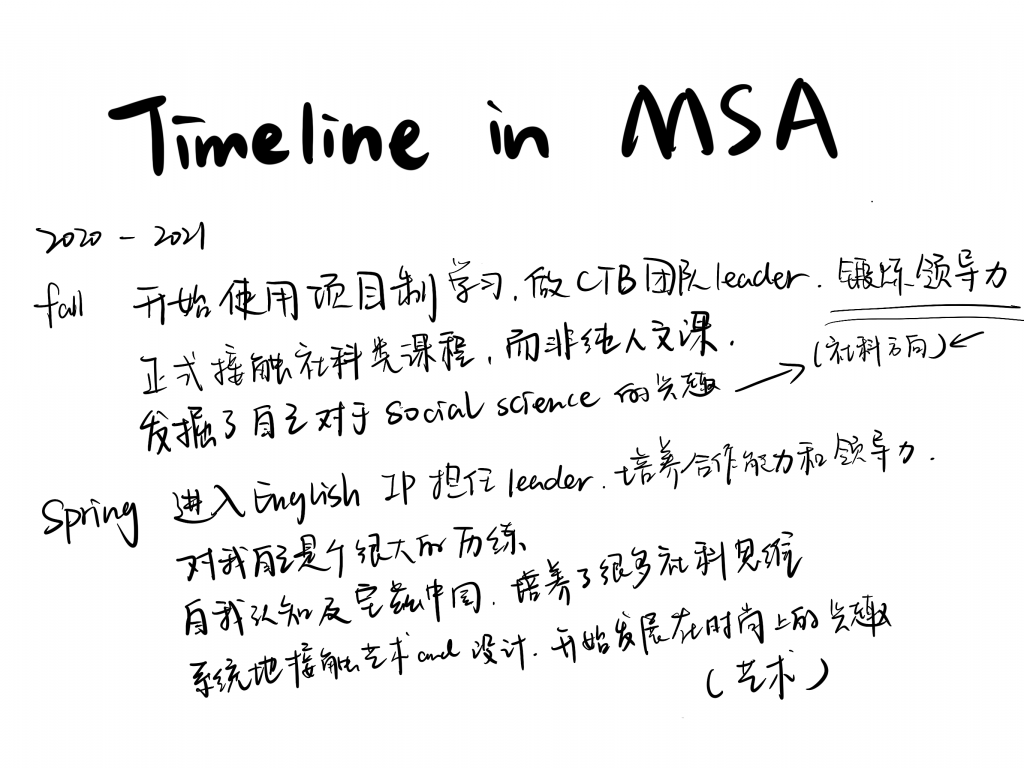 Timeline in MSA
2020 - 2021
fall 开始使用项目制学习,做CTB团队leader.锻炼领导力
正式接触社科类课程,而非纯人文课.
(社科方向)
发掘了自己对于social science的兴趣
Spring 进入English IP担任leader.培养合作能力和领导力.
对我自己是个很大的历练
自我认知及中国.培养了很多社科思维
系统地接触艺术and设计.开始发展在时尚上的兴趣
(艺术)